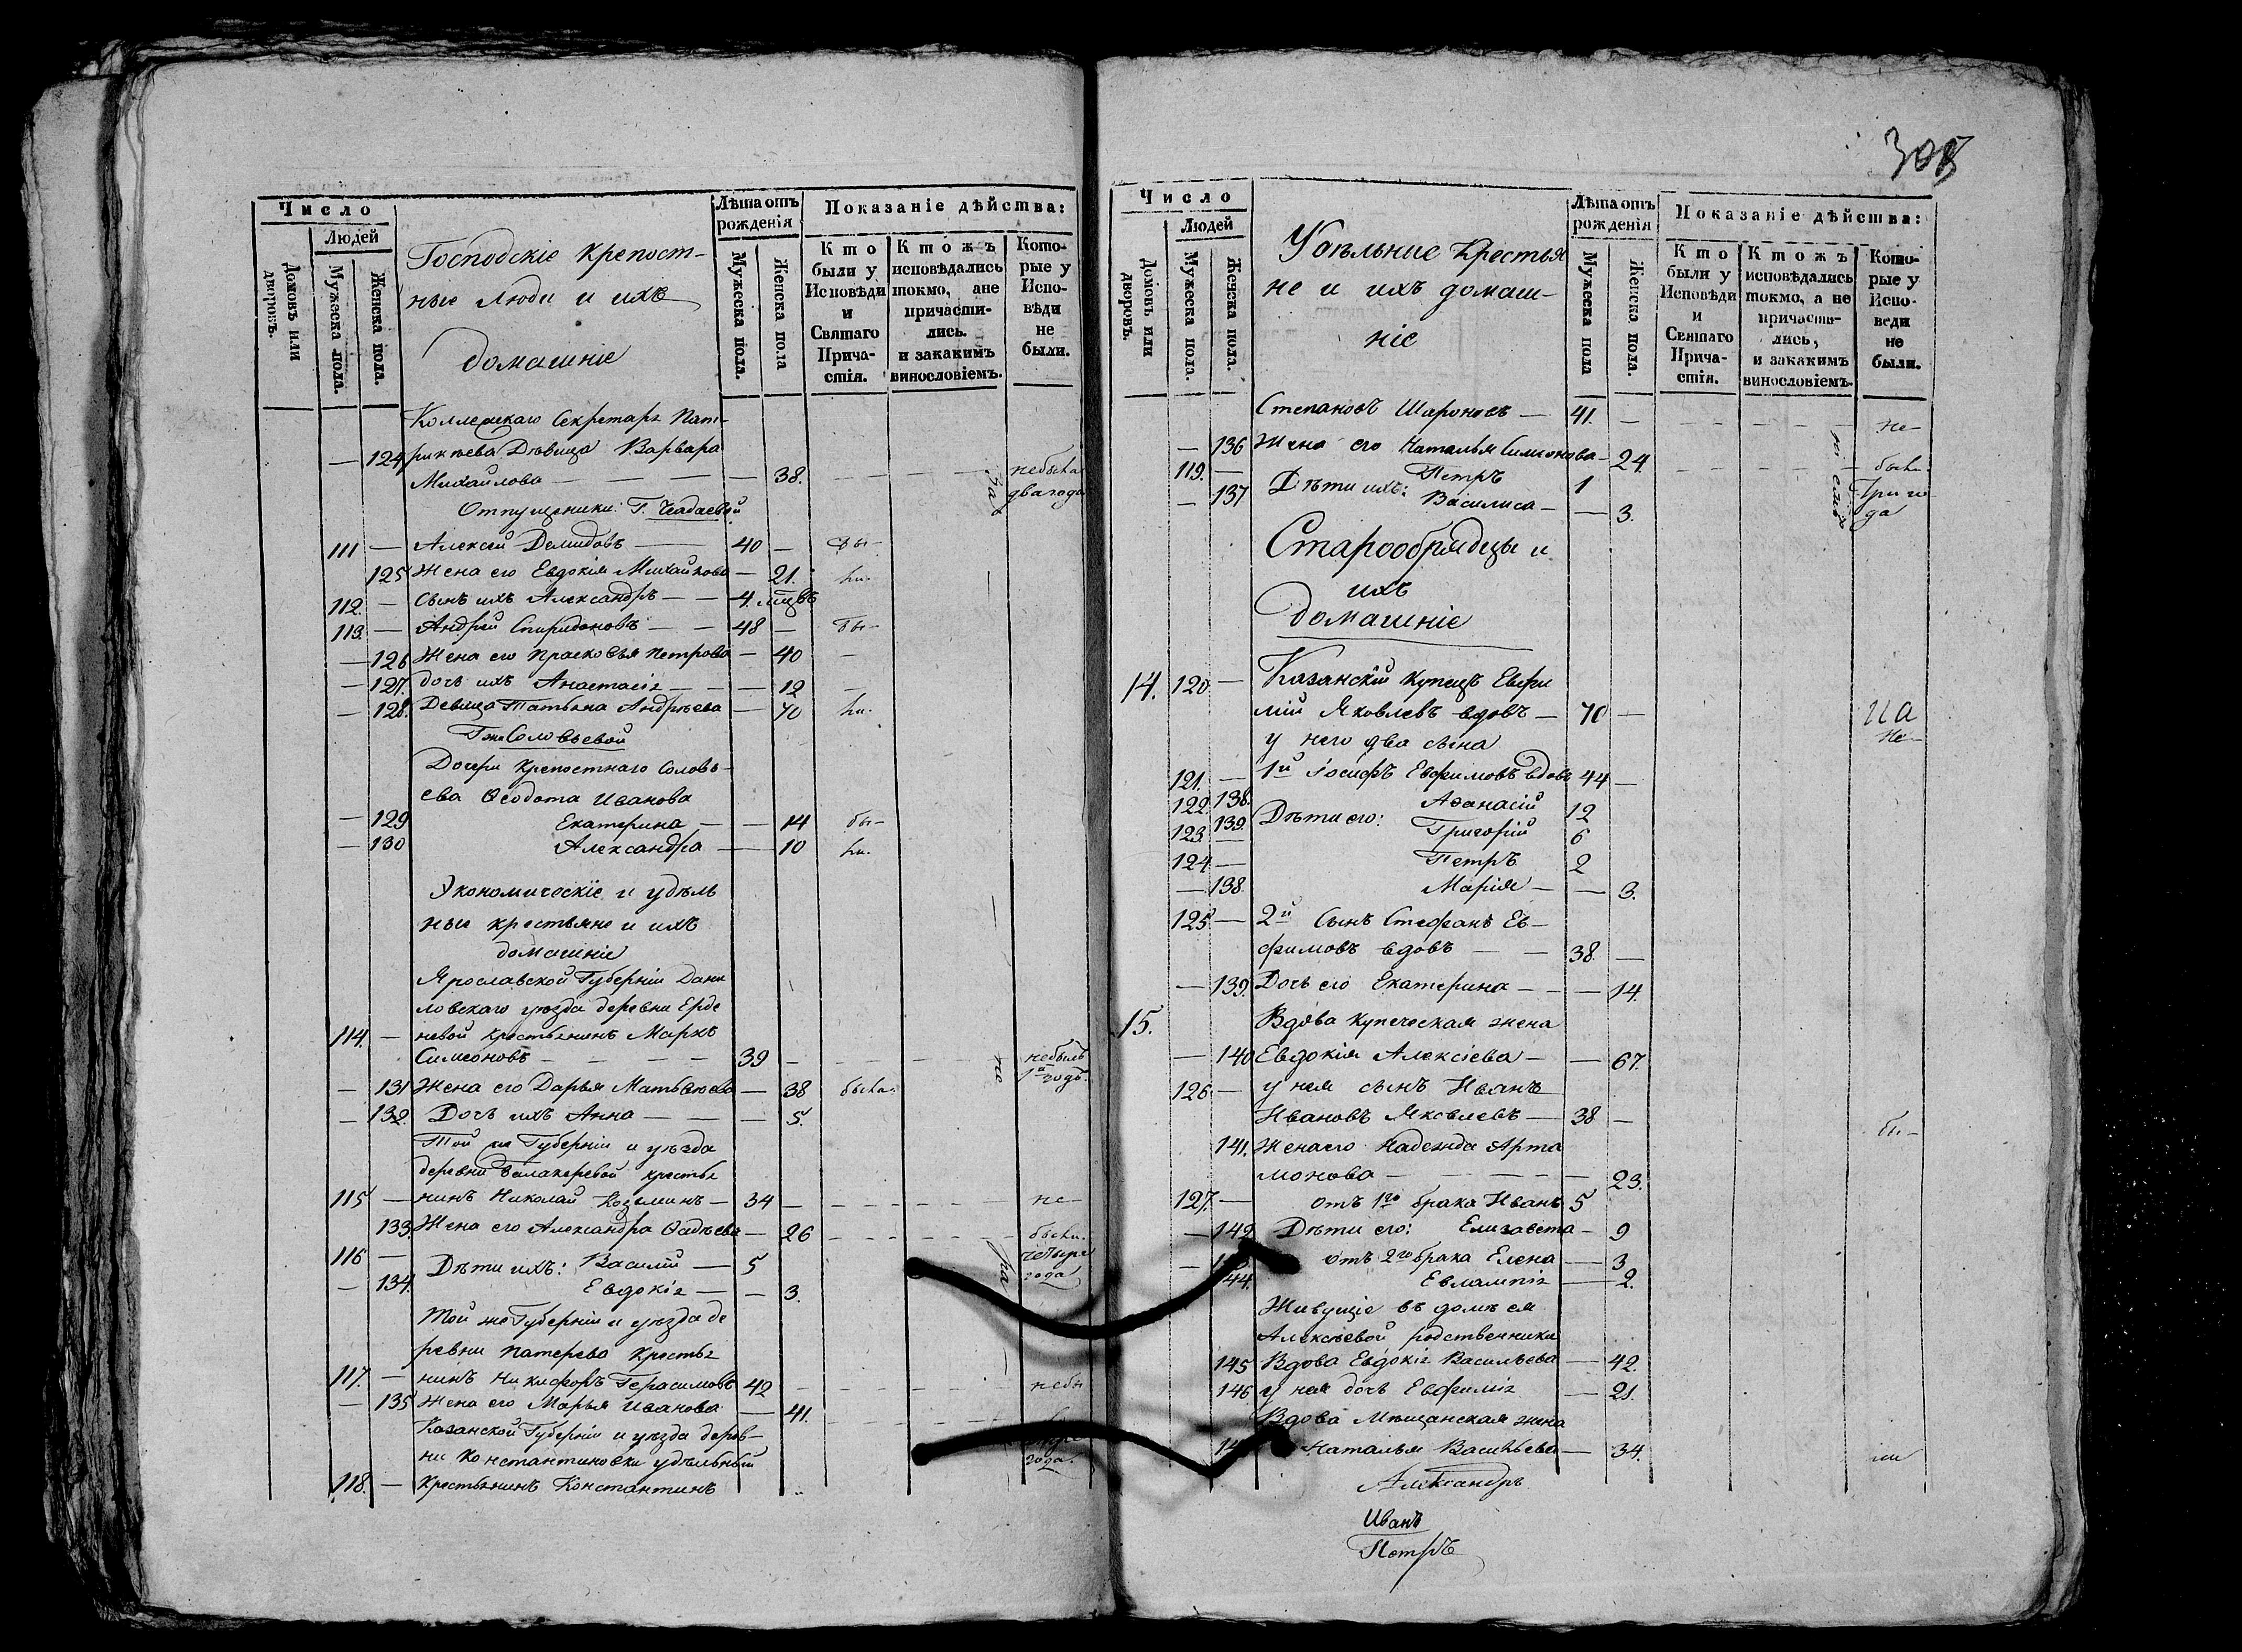 Число
Людей
Домовъ или дворовъ.
Мужеска пола.
Женска пола.
Господскіе крепост-
ные люди и ихъ
домашніе
Лѣта отъ рожденія
Мужеска пола.
Женска пола
Показаніе дѣйства:
Кто были у Исповѣди и Святаго Прича- стія.
Ктожъ исповѣдались токмо, ане причасти- лись. и закакимъ винословіемъ.
Кото- рые у Испо- вѣди не были.
Коллежскаго Секретаря Пат-
— 124 рикѣева Дѣвица Варвара
Михайлова — — — — 38. небыла
два года
Отпущеники: Г. Чадаевой
111 — Алексѣй Демидовъ — 40 — бы-
125 Жена его Евдокія Михайлова — 21. ли.
112. — Сынъ ихъ Александръ — — 4. мцвъ
113. — Андрей Спиридоновъ — — 48 — бы-
— 126 Жена его Прасковья Петрова — 40 —
— 127. дочь ихъ Анастасія — — — 12 —
— 128. Девица Татьяна Андрѣева — 70 ли.
Гжи Соловьевой
Дочери крепостнаго Соловь-
ева Ѳеодота Иванова
— 129 Екатерина — — 14 бы-
— 130 Александра — — 10 ли.
Экономическіе и удѣль
ные крестьяне и ихъ
домашніе
Ярославской Губерніи Дани
ловскаго уѣзда деревни Ерде
114. — невой крестьянинъ Маркъ
Симеоновъ — — — — 39 — небылъ
1й годъ.
— 131 Жена его Дарья Матвѣева — 38 была.
— 132. Дочь ихъ Анна — — — 5.
Той же Губерніи и уѣзда
деревни крестья
115 — нинъ Николай Козминъ — 34 — не-
133. Жена его Александра Ѳадѣева — 26 были.
четыре
года
116 — Дѣти ихъ: Василій — 5
— 134. Евдокія — — 3.
Той же Губерніи и уѣзда де
ревни Патерево крестья
117. — нинъ Никифоръ Герасимовъ 42 небы
— 135 Жена его Марья Иванова — 41.
года.
Казанской Губерніи и уѣзда дерев-
ни Константиновки удѣльный
118. — Крестьянинъ Константинъ
308
Число
Людей
Домовъ или дворовъ.
Мужеска пола.
Женска пола.
Удѣльные крестья
не и ихъ домаш-
ніе
Лѣта отъ рожденія
Мужеска пола
Женска пола.
Показаніе дѣйства:
Кто были у Исповѣди и Святаго Прича- стія.
Ктожъ исповѣдались токмо, а не причасти- лись, и закакимъ винословіемъ.
Кото- рые у Испо- веди не были.
Степановъ Шароновъ — 41. — не-
— 136 Жена его Наталья Симионова — 24. были
119. — Петръ 1 Три го
Дѣти ихъ:
— 137 Василиса — — 3. да
Старообрядцы и
ихъ
домашніе
14. 120 — Казанскій купецъ Евфи
мій Яковлевъ вдовъ — 70 —
у него два сына
не-
121. — 1й Іосифъ Евфимовъ вдовъ 44 —
122. 138. Аѳанасій 12
Дѣти его:
123. 139. Григорій 6
124 — Петръ 2
— 138. Марія — — 3.
125 — 2й Сынъ Стефанъ Ев-
фимовъ вдовъ — — 38. —
— 139. Дочь его Екатерина — — — 14.
15. Вдова купеческая жена
— 140 Евдокія Алексіева — — 67.
126 — у нея сынъ Иванъ
Ивановъ Яковлевъ — 38 —
бы-
141. Жена его Надежда Арта
монова — — — — 23.
127. — отъ 1го брака Иванъ 5
— 142 Дѣти его: Елизавета — 9
отъ 2го брака Елена — 3
44. Евлампія — 2.
Живущіе въ домѣ ея
Алексѣевой родственники
145 Вдова Евдокія Васильева — 42.
146 у нея дочь Евфимія — 21.
Вдова Мещанская жена
Наталья Васильева — 34. ли
Александръ
Иванъ
Петръ